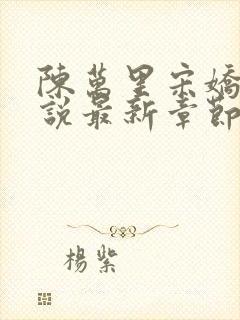 陳萬里宋嬌
說最新章節
楊紫